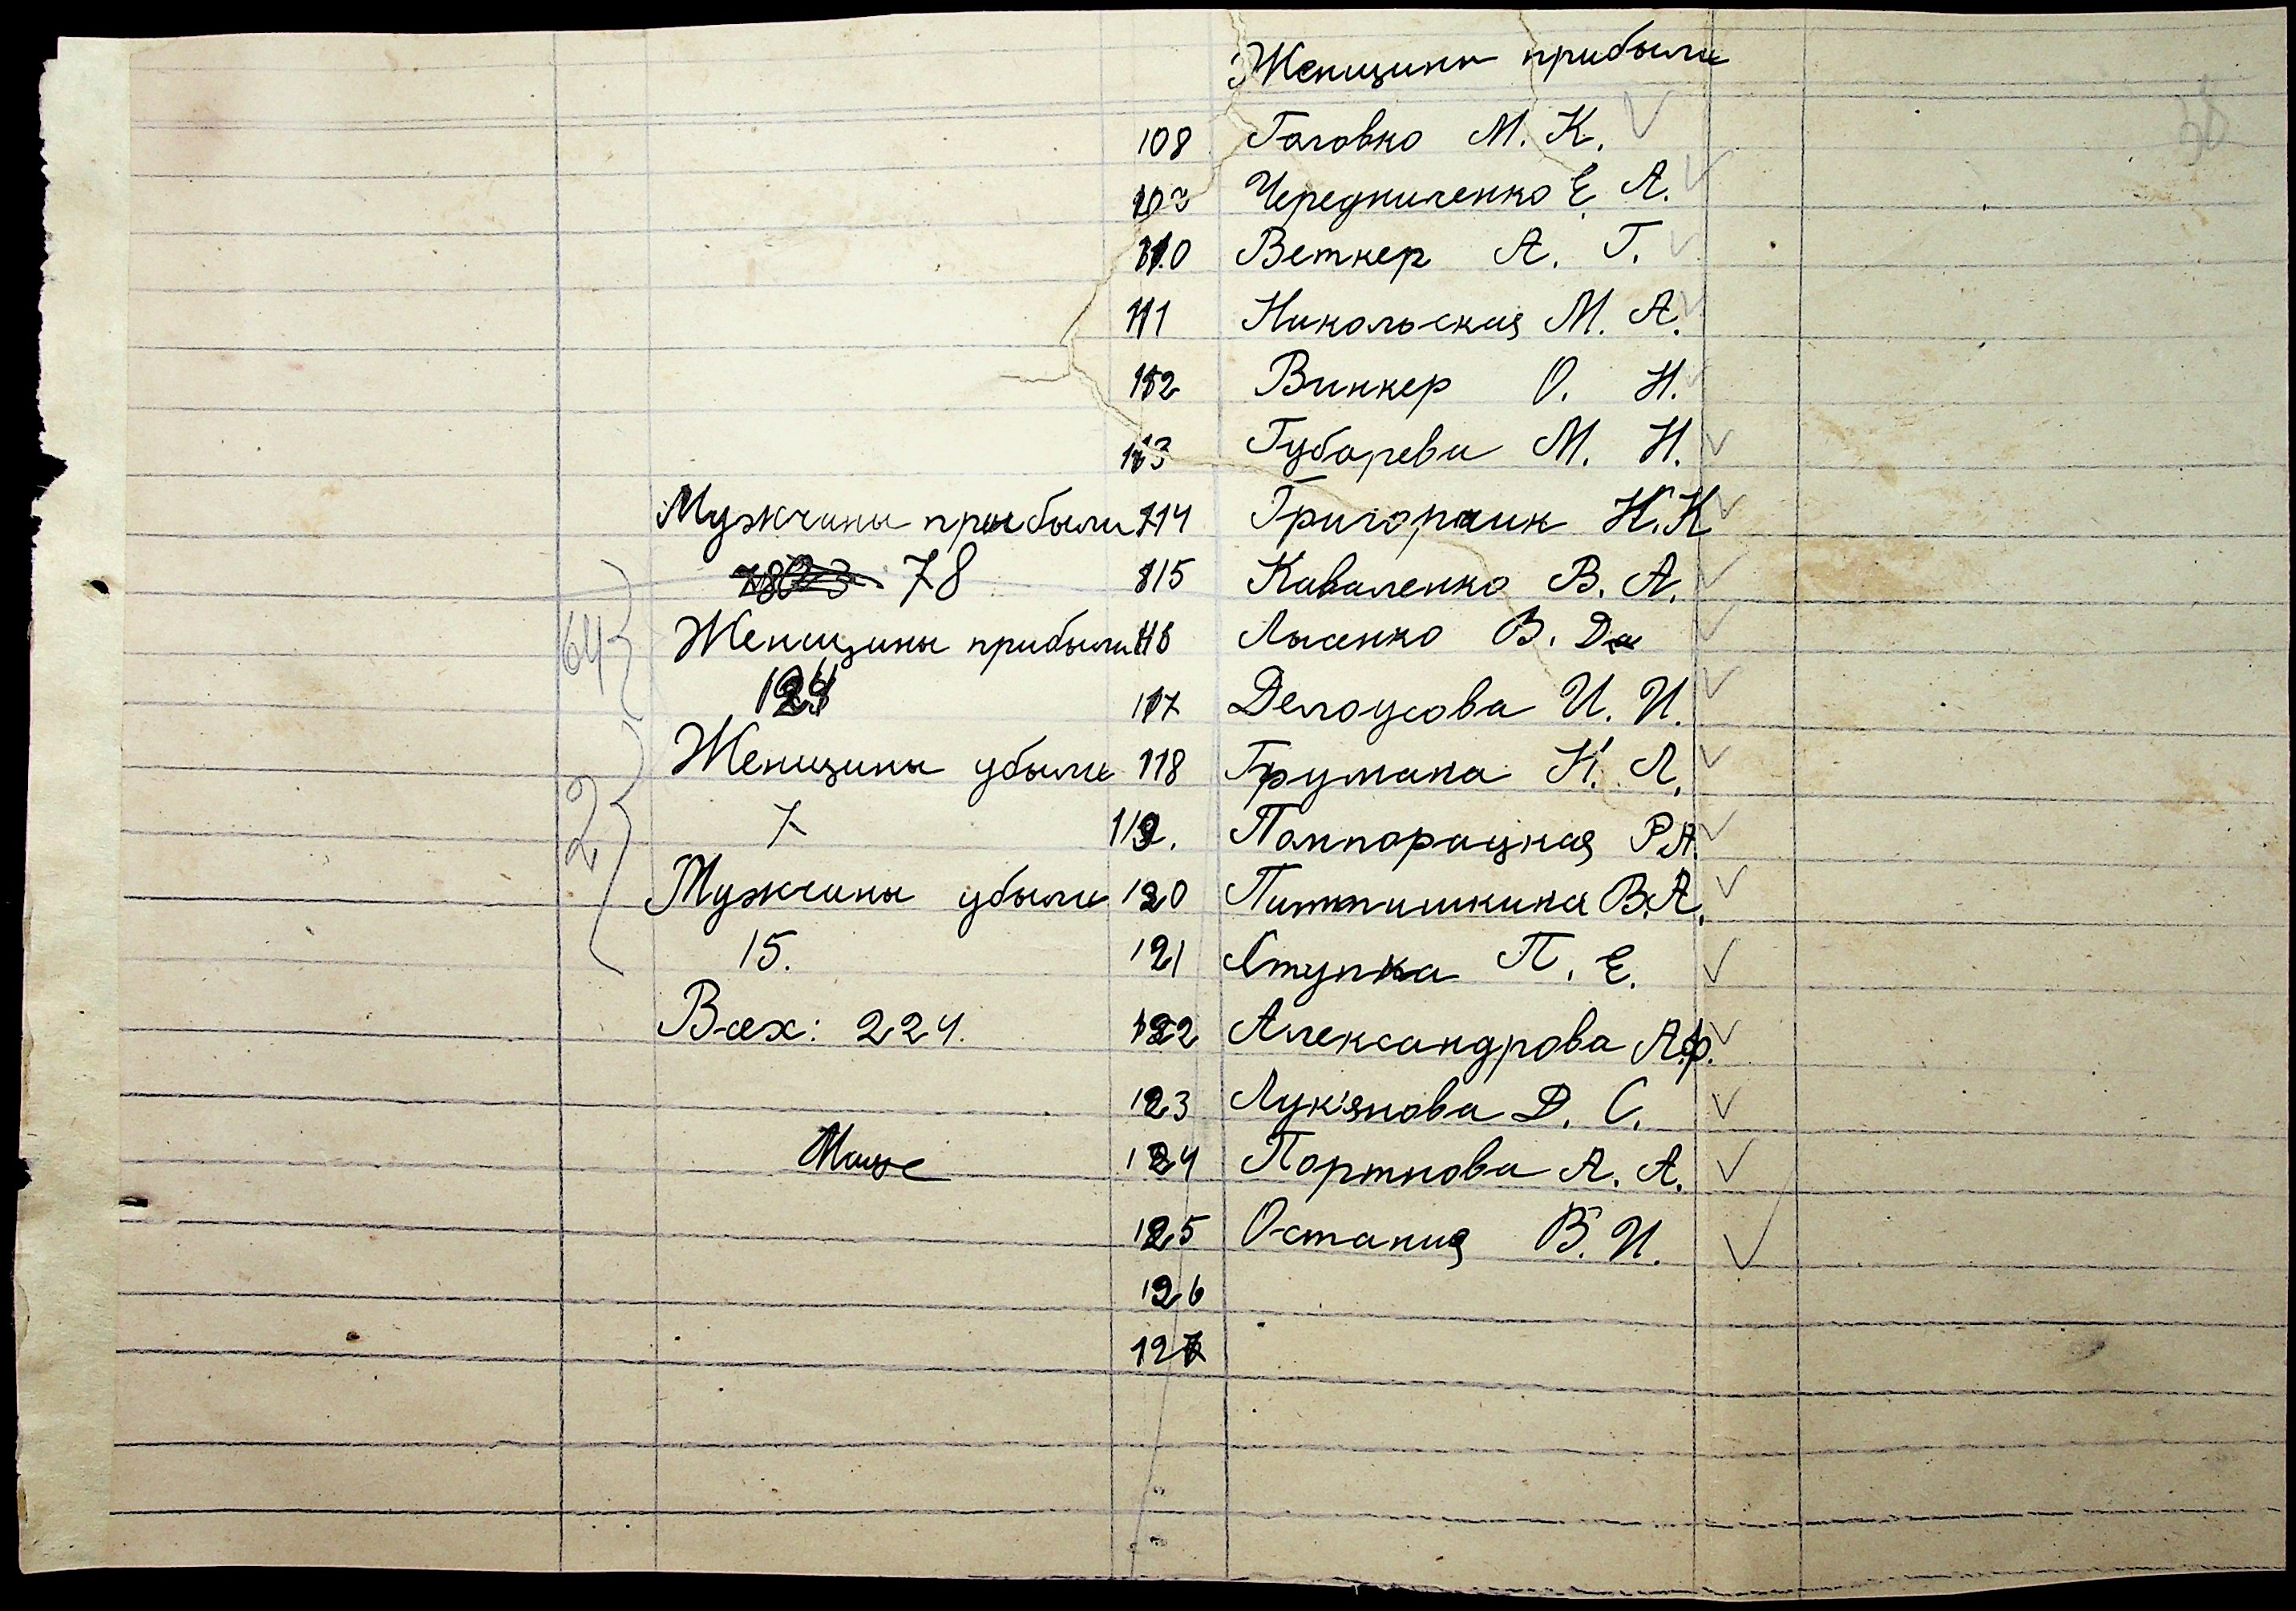 Женщины прибыли
108 Головко М. К.
109 Чередниченко Е. А.
110 Веткер А. Г.
111 Никольская М. А.
112 Винкер О. Н.
113 Губарева М. Н.
Мужчины прибыли 114 Григорпик Н. К
78 115 Каваленко В. А.
64 Женщины прибыли 116 Лысенко В. Да
124 117 Делоусова И. И.
Женщины убыли 118 Грумана К. Л.
2 7 119. Полторацкая Р. А.
Мужчины убыли 120 В. А.
15. 121 Ступка П. Е.
Всех: 224. 122 Александрова А. Ф.
123 Лукянова Д. С.
124 Портнова А. А.
125 Остания В. И.
126
127